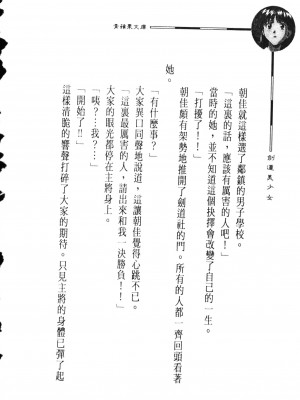 青蘋果文庫
劍道美少女
朝佳就這樣選了鄰鎮的男子學校。
「這裏的話，應該有厲害的人吧！」
當時的她，並不知道這個抉擇會改變了自己的一生。
「打擾了！！」
朝佳頗有架勢地推開了劍道社的門。所有的人都一齊回頭看著
她。
「有什麼事？」
大家異口同聲地說道，這讓朝佳覺得心跳不已。
「這裏最厲害的人，請出來和我一決勝負！！」
大家的眼光都停在主將身上。
「咦？…我？…」
「開始了!!」
這樣清脆的響聲打碎了大家的期待。只見主將的身體已彈了起